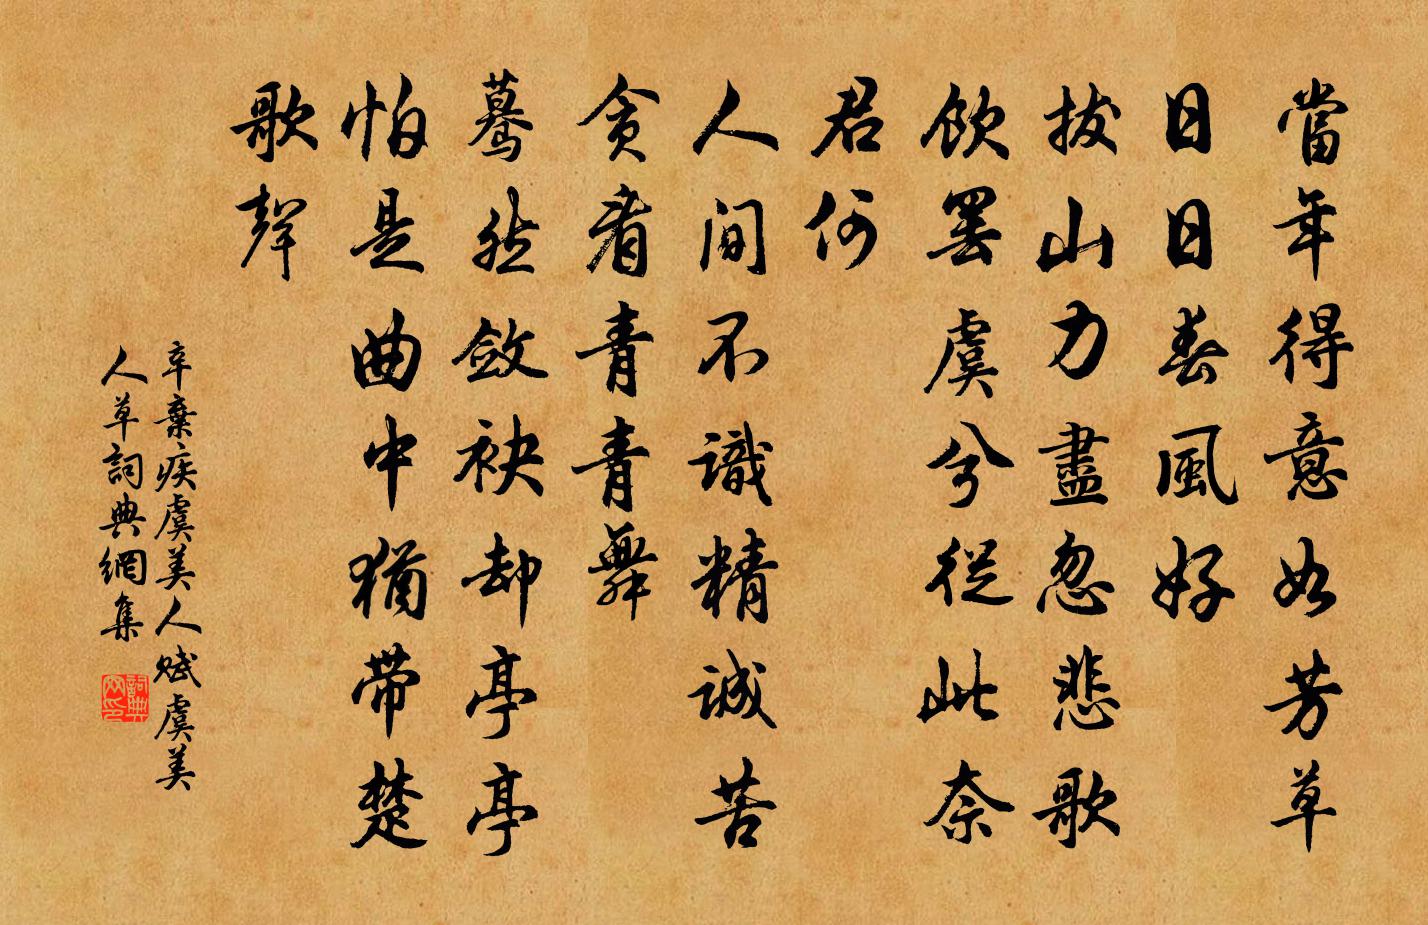 當年得意如芳草
日日春風好
拔山力盡忽悲歌
飲罷虞兮從此奈
君何
人間不識精誠苦
貪看青青舞
驀然斂袂却亭亭
怕是曲中猶帶楚
歌聲
辛棄疾虞美人賦虞美
人草詞典網集
詞典網印